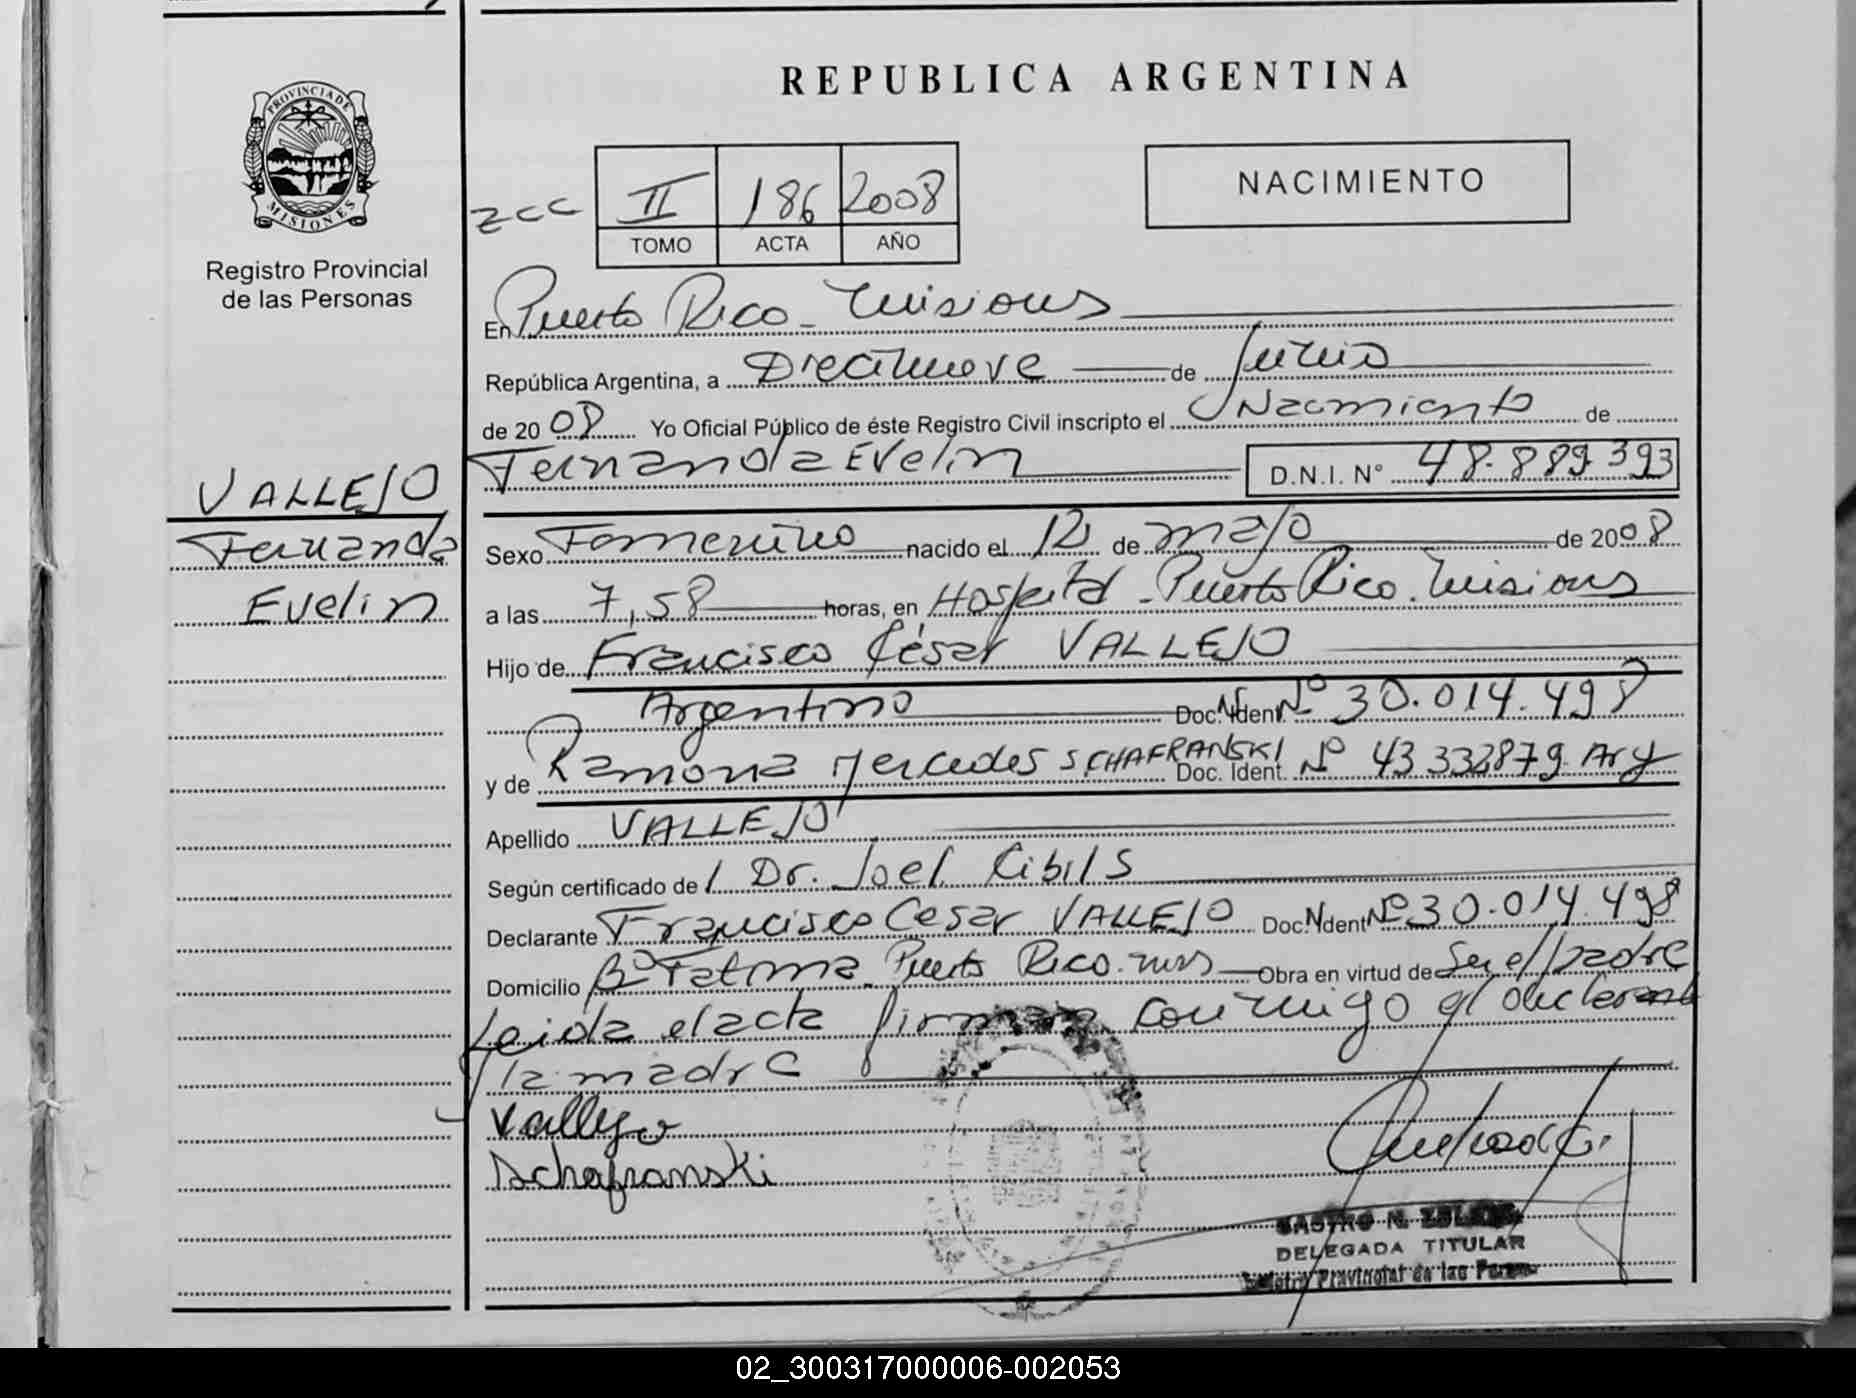 REPUBLICA ARGENTINA
PROVINCIA DE
MISIONES
Registro Provincial
de las Personas
zcc II 186 2008
TOMO ACTA AÑO
NACIMIENTO
En Puerto Rico - Misiones
República Argentina, a Diecinueve de Junio
de 2008 Yo Oficial Público de éste Registro Civil inscripto el Nacimiento de
Fernanda Evelin D.N.I. Nº 48.889.393
VALLEJO
Fernanda
Evelin
Sexo Femenino nacido el 12 de mayo de 2008
a las 7,58 horas, en Hospital - Puerto Rico. Misiones
Hijo de Francisco César VALLEJO
Argentino Doc. Ident. Nº 30.014.498
y de Ramona Mercedes SCHAFRANSKI Doc. Ident. Nº 43 332879 Arg
Apellido VALLEJO
Según certificado de Dr. Joel Cibils
Declarante Francisco Cesar VALLEJO Doc. Ident. Nº 30.014.498
Domicilio Bº Fatima - Puerto Rico. mns Obra en virtud de Ser el padre
Leida el acta firman conmigo el declarante
y la madre
Vallejo
Schafranski
CASTRO N.
DELEGADA TITULAR
Registro Provincial de las Person
02_300317000006-002053